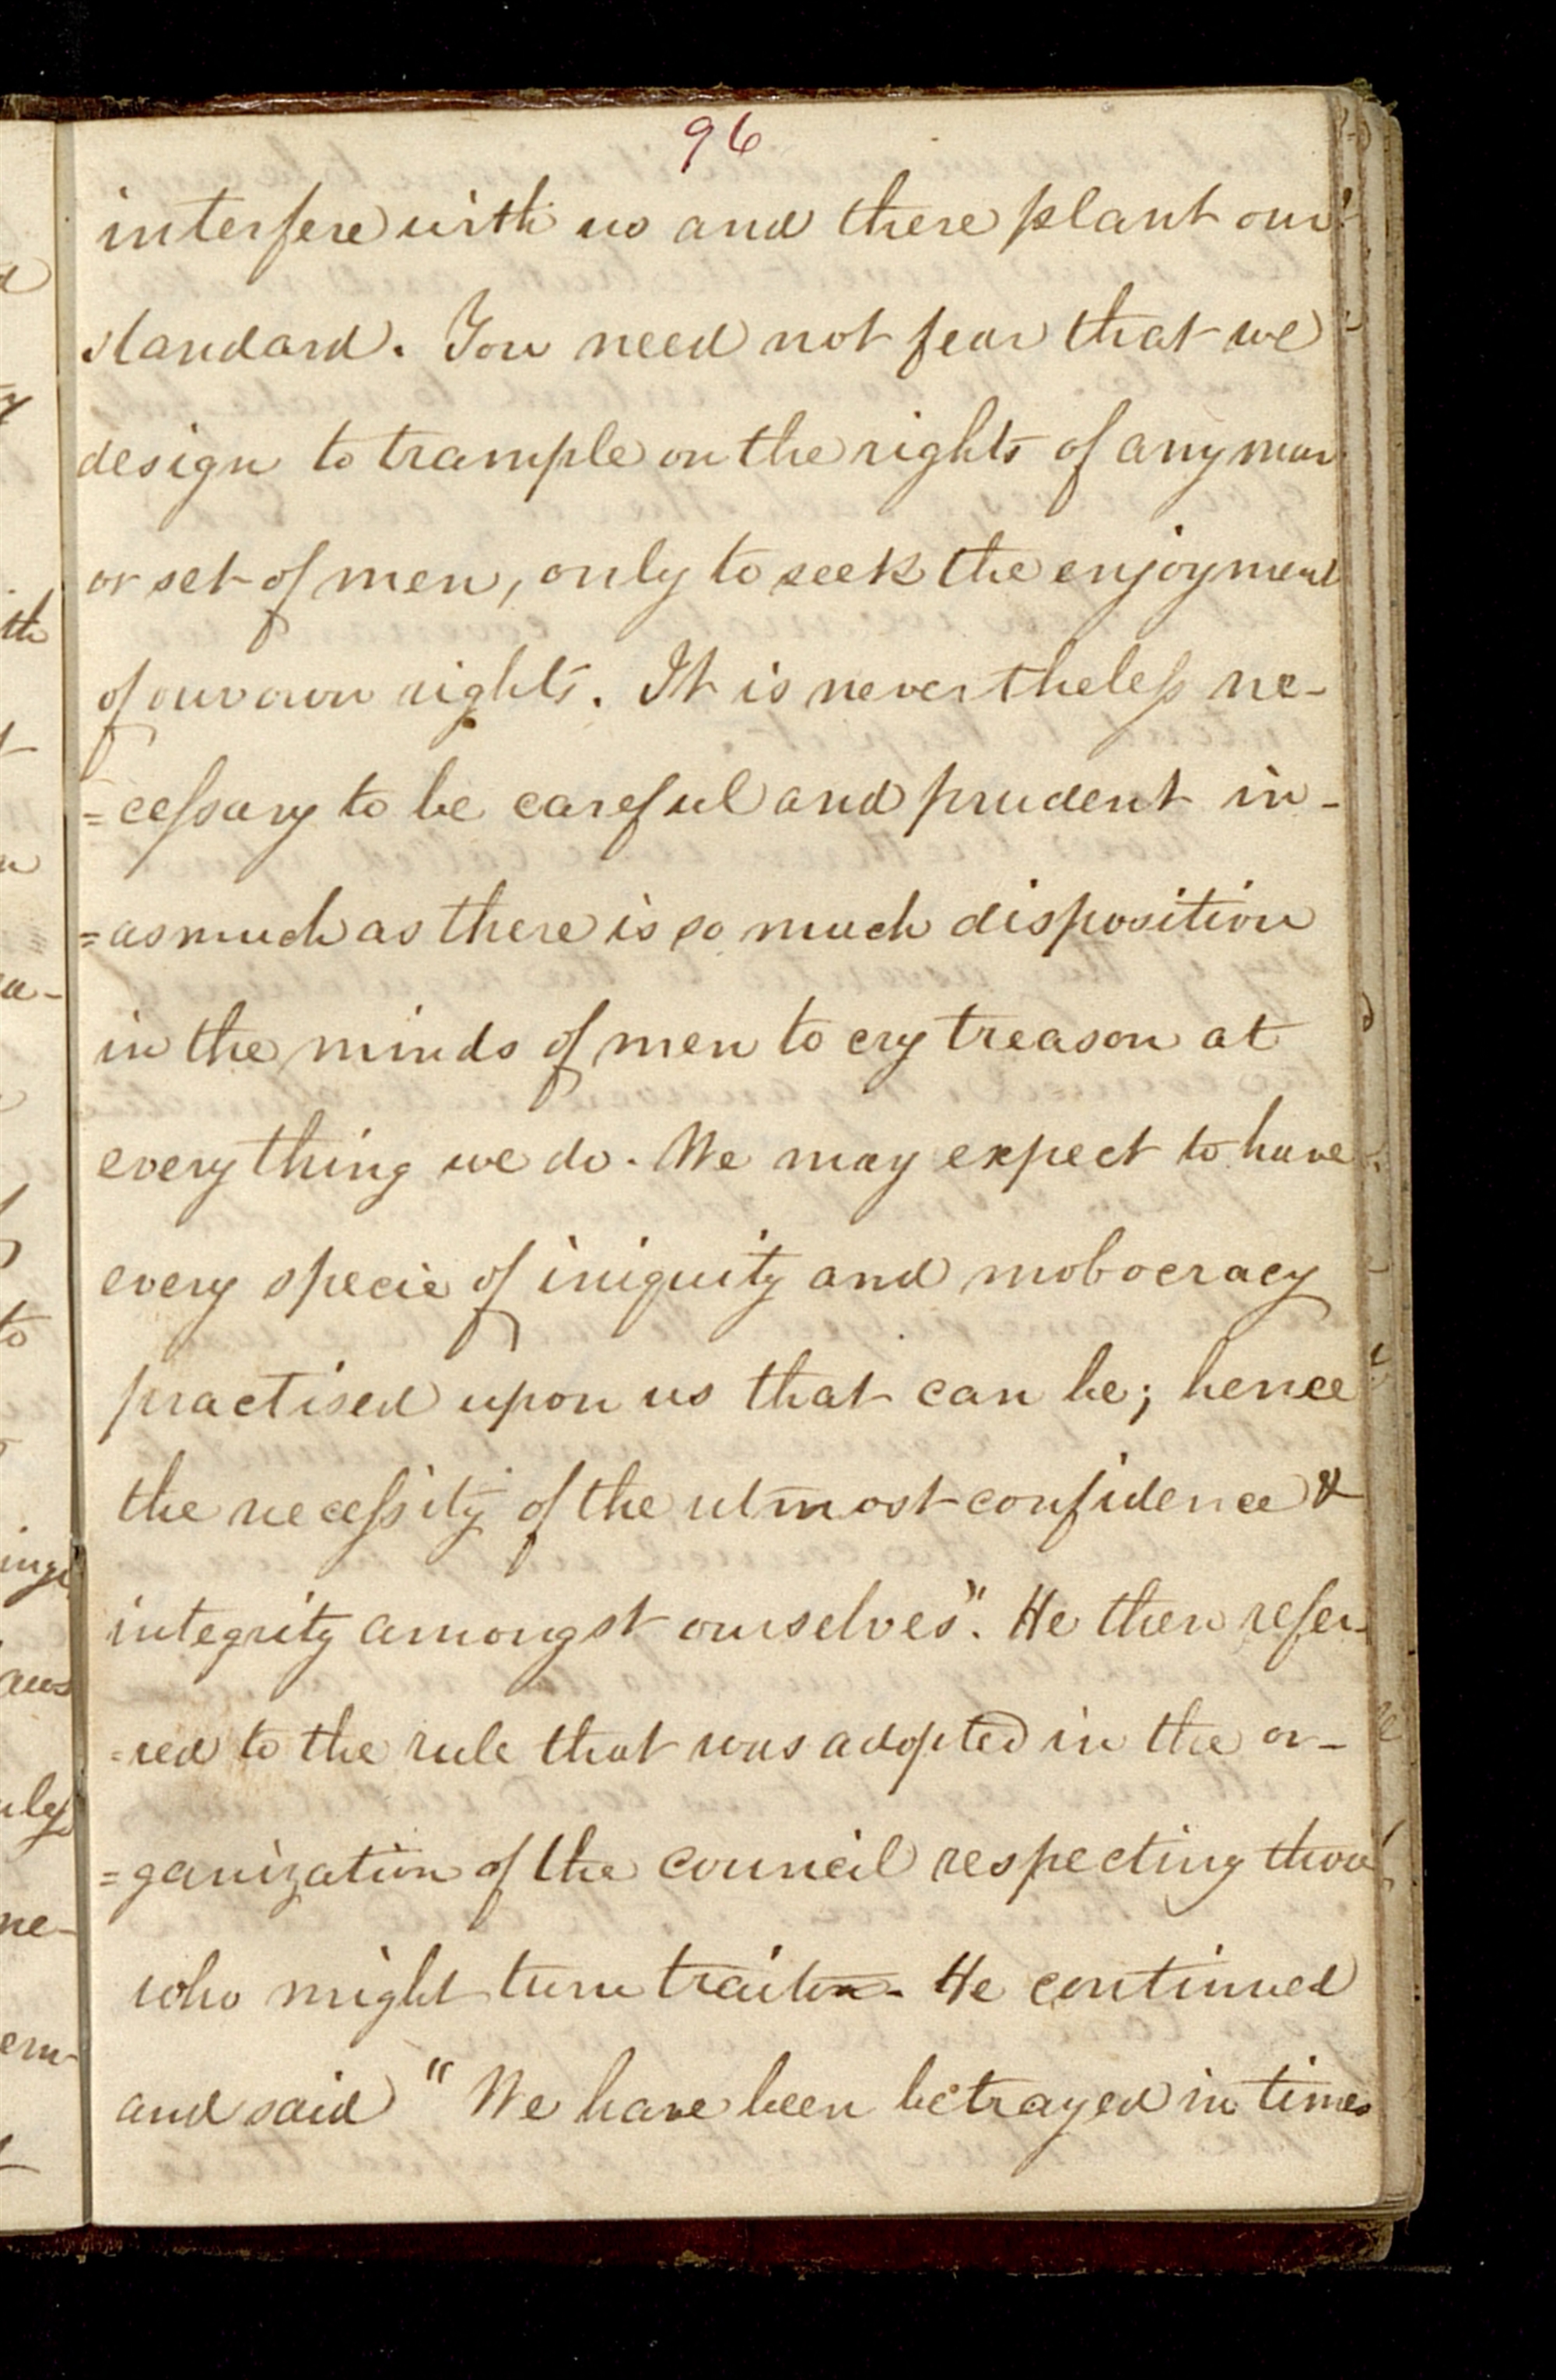 96
interfere with us and there plant our
standard. You need not fear that we
design to trample on the rights of any man
or set of men, only to seek the enjoyment
of our own rights. It is nevertheless ne-
=cessary to be careful and prudent in-
=asmuch as there is so much disposition
in the minds of men to cry treason at
every thing we do. We may expect to have
every specie of iniquity and mobocracy
practised upon us that can be; hence
the necessity of the utmost confidence &
integrity amongst ourselves". He then refer-
=red to the rule that was adopted in the or-
=ganization of the council respecting those
who might turn traitor. He continued
and said "We have been betrayed in times